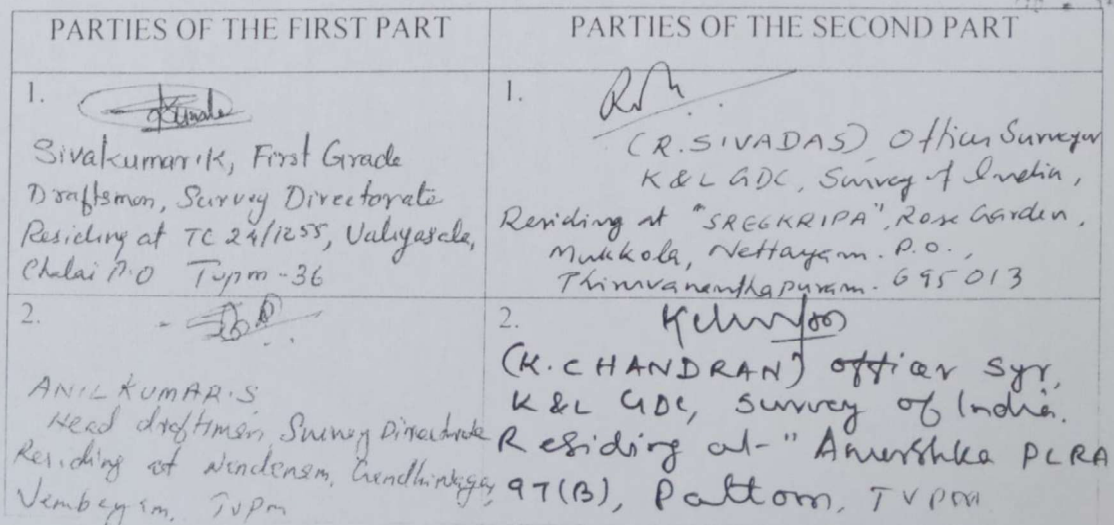 PARTIES OF THE FIRST PART
PARTIES OF THE SECOND PART
1.
Sivakumar.K, First Grade
Draftsman, Survey Directorate
Residing at TC 24/1255, Valiyasala,
Chalai P.O Tvpm-36
1.
(R. SIVADAS) Officer Surveyor
K & L GDC, Survey of India,
Residing at "SREEKRIPA", Rose Garden,
Mukkola, Nettayam. P.O.,
Thiruvananthapuram. 695013
2.
ANIL KUMAR.S
Head draftsman, Survey Directorate
Residing at Nandanam, Gandhinagar,
Vembayam, Tvpm
2.
(K. CHANDRAN) officer Syr,
K & L GDC, Survey of India.
Residing at - " PLRA
97(B), Pattom, TVPM